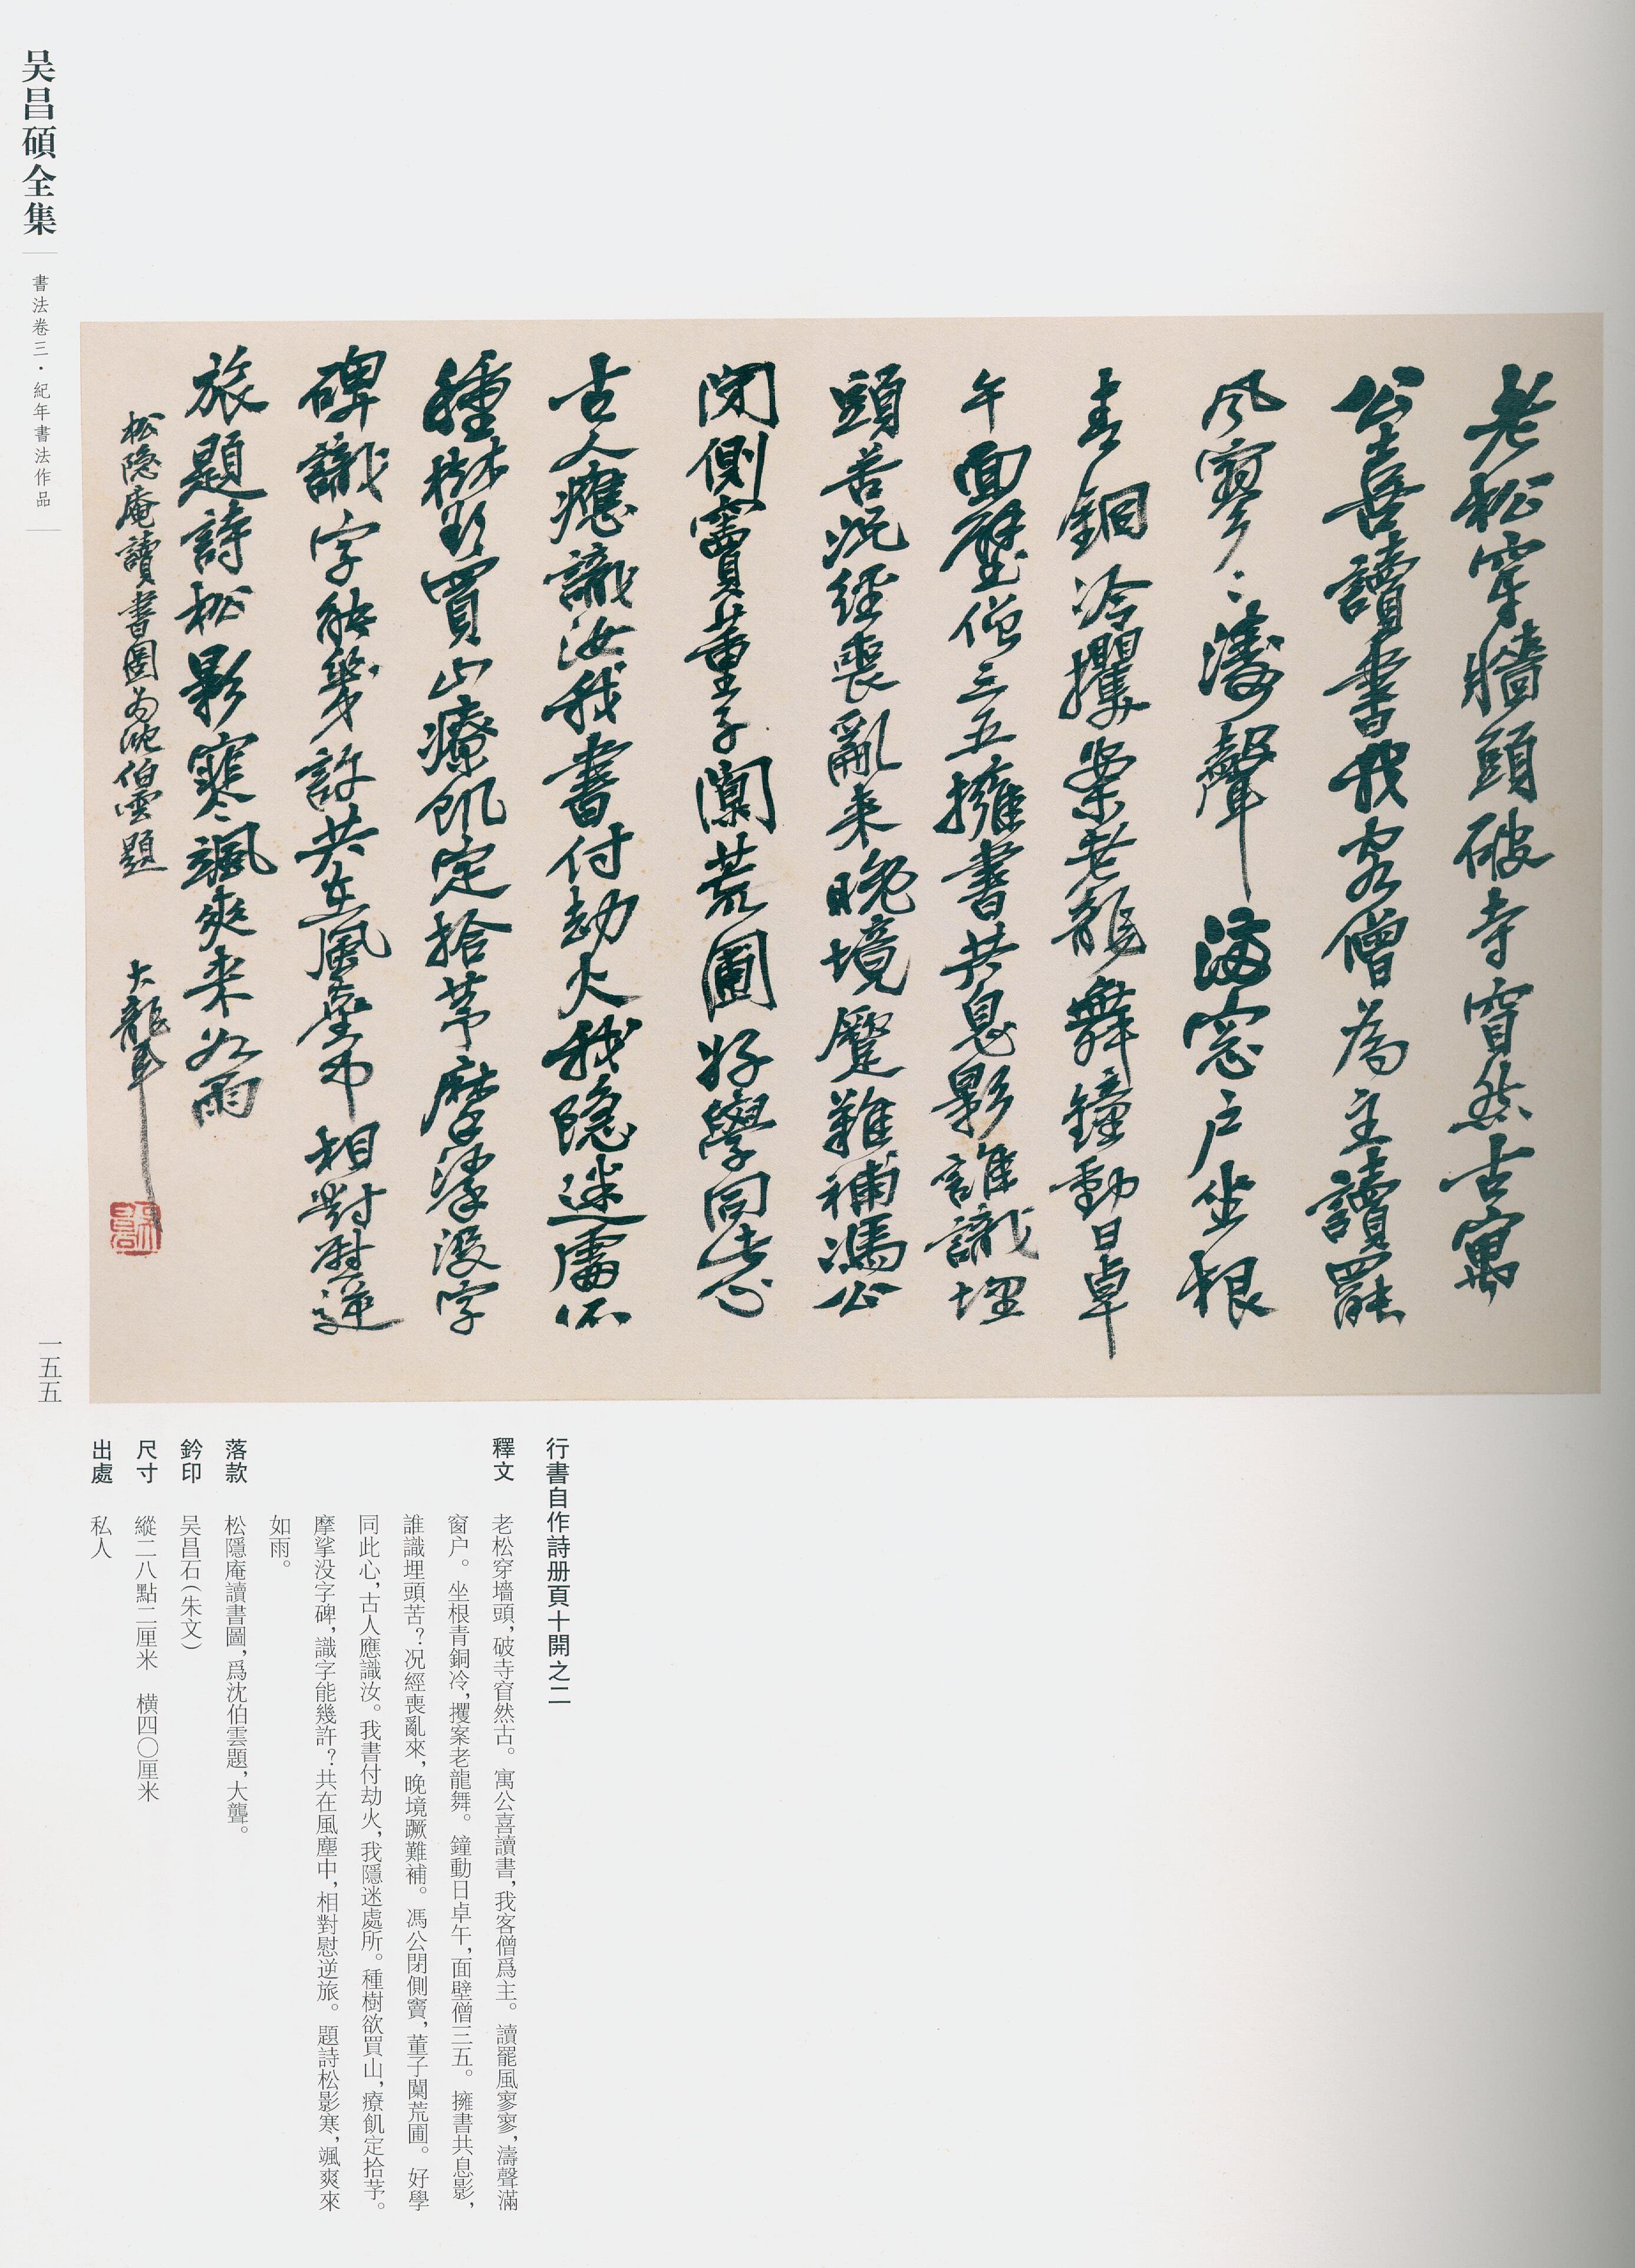 吴昌碩全集
書法卷三·紀年書法作品
老松穿牆頭破寺窅然古寓
公喜讀書我客僧為主讀罷
風寥〻濤聲滿窓戶坐根
青銅冷攫案老龍舞鐘動日卓
午面壁僧三五擁書共息影誰識埋
頭苦況經喪亂来晚境蹷難補馮公
閉側竇董子闑荒圃好學同此心
古人應識汝我書付劫火我隐迷處所
種樹欲買山療飢定拾芧摩挲没字
碑識字能幾許共在風塵中相對慰逆
旅題詩松影寒颯爽来如雨
松隐庵讀書圖為沈伯雲題 大聾
一五五
行書自作詩册頁十開之二
釋文 老松穿墻頭，破寺窅然古。寓公喜讀書，我客僧爲主。讀罷風寥寥，濤聲滿
窗户。坐根青銅冷，攫案老龍舞。鐘動日卓午，面壁僧三五。擁書共息影，
誰識埋頭苦？况經喪亂來，晚境蹶難補。馮公閉側竇，董子闑荒圃。好學
同此心，古人應識汝。我書付劫火，我隱迷處所。種樹欲買山，療飢定拾芧。
摩挲没字碑，識字能幾許？共在風塵中，相對慰逆旅。題詩松影寒，颯爽來
如雨。
落款 松隱庵讀書圖，爲沈伯雲題，大聾。
鈐印 吴昌石（朱文）
尺寸 縱二八點二厘米 橫四〇厘米
出處 私人